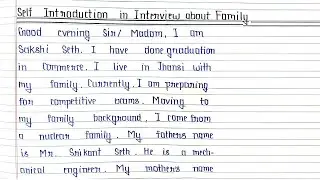 Self Introduction in Interview about Family
Good evening Sir/ Madam, I am
Sakshi Seth. I have done graduation
in commerce. I live in Jhansi with
my family. Currently, I am preparing
for competitive exams. Moving to
my family background, I come from
a nuclear family. My father's name
is Mr. Srikant Seth. He is a mech-
anical engineer. My mother's name